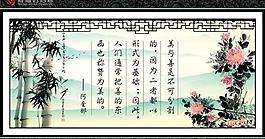 美与善是不可分割
的，因之二者都以
形式为基础；因此，
人们通常把善的东
西也称赞为美的。
阿奎那